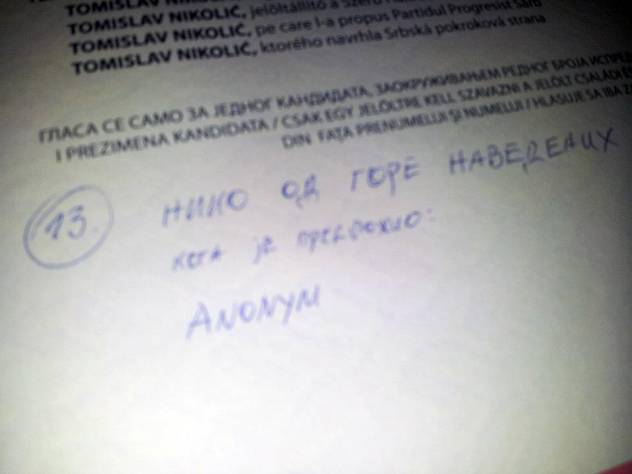 TOMISLAV NIKOLIĆ, jelöltállító a Szerb
TOMISLAV NIKOLIĆ, pe care l-a propus Partidul Progresist Sârb
TOMISLAV NIKOLIĆ, ktorého navrhla Srbská pokroková strana
ГЛАСА СЕ САМО ЗА ЈЕДНОГ КАНДИДАТА, ЗАОКРУЖИВАЊЕМ РЕДНОГ БРОЈА ИСПРЕД
I PREZIMENA KANDIDATA / CSAK EGY JELÖLTRE KELL SZAVAZNI A JELÖLT CSALÁDI ÉS
DIN FAȚA PRENUMELUI ȘI NUMELUI / HLASUJE SA IBA ZA
13. НИКО ОД ГОРЕ НАВЕДЕНИХ
КОГА ЈЕ ПРЕДЛОЖИО:
ANONYM